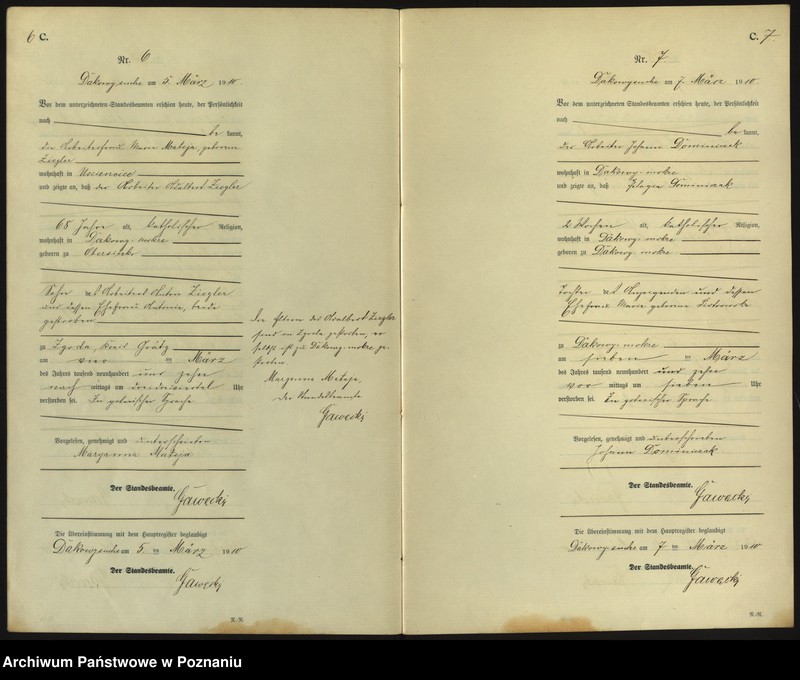 6 C.
Nr. 6
Dakowy suche am 5. März 1910.
Vor dem unterzeichneten Standesbeamten erschien heute, der Persönlichkeit
nach
be kannt,
die Arbeiterfrau Marie Mateja, geborene
Ziegler
wohnhaft in
und zeigte an, daß der Arbeiter Adalbert Ziegler
68 Jahre alt, katholischer Religion,
wohnhaft in Dakowy-mokre
geboren zu
Sohn Anton Ziegler
und dessen Ehefrau Antonie, beide
gestorben
zu Zgoda, Kreis Grätz
am vier ten März
des Jahres tausend neunhundert und zehn
nach mittags um dreiviertel Uhr
verstorben sei. In polnischer Sprache
Vorgelesen, genehmigt und unterschrieben
Maryanna Mateja
Der Standesbeamte.
Gawecki
Die Übereinstimmung mit dem Hauptregister beglaubigt
Dakowy suche am 5 ten März 1910
Der Standesbeamte.
Gawecki
R.-R.
Die Eltern des Adalbert Ziegler
sind in Zgoda gestorben, er
selbst ist zu Dakowy-mokre ge-
storben.
Maryanna Mateja,
Der Standesbeamte
Gawecki
C. 7.
Nr. 7
Dakowy suche am 7. März 1910.
Vor dem unterzeichneten Standesbeamten erschien heute, der Persönlichkeit
nach
be kannt,
der Arbeiter Johann Dominiczak
wohnhaft in Dakowy-mokre
und zeigte an, daß Pelagia Dominiczak
2 Wochen alt, katholischer Religion,
wohnhaft in Dakowy-mokre
geboren zu Dakowy-mokre
Tochter des Anzeigenden und dessen
Ehefrau Marie geborene
zu Dakowy-mokre
am sieben ten März
des Jahres tausend neunhundert und zehn
vor mittags um sieben Uhr
verstorben sei. In polnischer Sprache
Vorgelesen, genehmigt und unterschrieben
Johann Dominiczak
Der Standesbeamte.
Gawecki
Die Übereinstimmung mit dem Hauptregister beglaubigt
Dakowy suche am 7 ten März 1910
Der Standesbeamte.
Gawecki
R.-R.
Archiwum Państwowe w Poznaniu